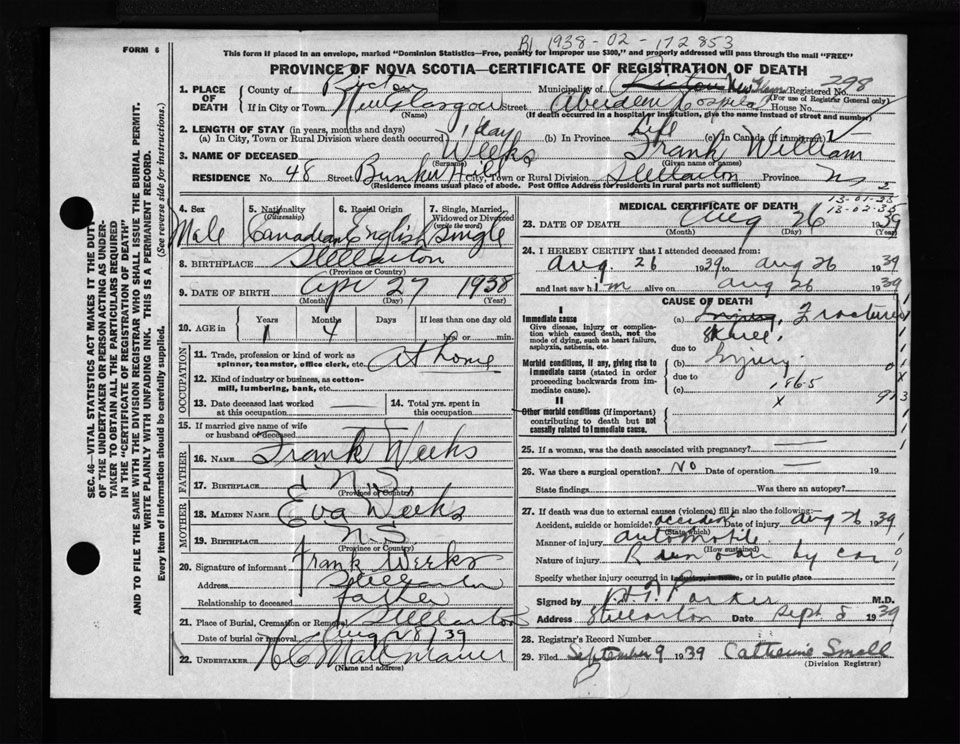 BJ 1938-02-172853
FORM 6
This form if placed in an envelope, marked "Dominion Statistics—Free, penalty for improper use $300," and properly addressed will pass through the mail "FREE"
PROVINCE OF NOVA SCOTIA—CERTIFICATE OF REGISTRATION OF DEATH
1. PLACE OF DEATH County of Pictou Municipality of Pictou Registered No. 298
(For use of Registrar General only)
If in City or Town New Glasgow Street Aberdeen Hospital House No.
(Name) (If death occurred in a hospital or institution, give the name instead of street and number)
2. LENGTH OF STAY (in years, months and days)
(a) In City, Town or Rural Division where death occurred 1 day (b) In Province Life (c) In Canada (if immigrant)
3. NAME OF DECEASED Weeks Frank William
(Surname) (Given name or names)
RESIDENCE No. 48 Street Bunker Hill City, Town or Rural Division Stellarton Province N S
(Residence means usual place of abode. Post Office Address for residents in rural parts not sufficient)
4. Sex Male
5. Nationality (Citizenship) Canadian
6. Racial Origin English
7. Single, Married, Widowed or Divorced (write the word) Single
8. BIRTHPLACE Stellarton
(Province or Country)
9. DATE OF BIRTH Apr 27 1938
(Month) (Day) (Year)
10. AGE in Years Months Days If less than one day
1 4 hrs. or min.
OCCUPATION
11. Trade, profession or kind of work as spinner, teamster, office clerk, etc. At home
12. Kind of industry or business, as cotton-mill, lumbering, bank, etc.
13. Date deceased last worked at this occupation
14. Total yrs. spent in this occupation
15. If married give name of wife or husband of deceased
FATHER
16. NAME Frank Weeks
17. BIRTHPLACE N.S.
(Province or Country)
MOTHER
18. MAIDEN NAME Eva Weeks
19. BIRTHPLACE N.S.
(Province or Country)
20. Signature of informant Frank Weeks
Address Stellarton
Relationship to deceased father
21. Place of Burial, Cremation or Removal Stellarton
Date of burial or removal Aug 28/39
22. UNDERTAKER
(Name and address)
MEDICAL CERTIFICATE OF DEATH
13-02-35
23. DATE OF DEATH Aug 26 1939
(Month) (Day) (Year)
24. I HEREBY CERTIFY that I attended deceased from:
Aug 26 1939 to Aug 26 1939
and last saw him alive on Aug 26 1939
CAUSE OF DEATH
I
Immediate cause
Give disease, injury or complication which caused death, not the mode of dying, such as heart failure, asphyxia, asthenia, etc.
(a) Injury, Fractured Skull
due to
Morbid conditions, if any, giving rise to immediate cause (stated in order proceeding backwards from immediate cause).
(b) Injury
due to
(c) 186.5
X 913
II
Other morbid conditions (if important) contributing to death but not causally related to immediate cause.
25. If a woman, was the death associated with pregnancy?
26. Was there a surgical operation? No Date of operation 19
State findings Was there an autopsy?
27. If death was due to external causes (violence) fill in also the following:—
Accident, suicide or homicide? accident Date of injury Aug 26 1939
(State which)
Manner of injury automobile
(How sustained)
Nature of injury Run over by car
Specify whether injury occurred in industry, in home, or in public place
Signed by Parker M.D.
Address Stellarton Date Sept 8 1939
28. Registrar's Record Number
29. Filed September 9 1939 Catherine Small
(Division Registrar)
SEC. 46—VITAL STATISTICS ACT MAKES IT THE DUTY OF THE UNDERTAKER OR PERSON ACTING AS UNDERTAKER TO OBTAIN ALL THE PARTICULARS REQUIRED IN THE "CERTIFICATE OF REGISTRATION OF DEATH"
AND TO FILE THE SAME WITH THE DIVISION REGISTRAR WHO SHALL ISSUE THE BURIAL PERMIT.
WRITE PLAINLY WITH UNFADING INK. THIS IS A PERMANENT RECORD.
Every item of information should be carefully supplied. (See reverse side for instructions.)